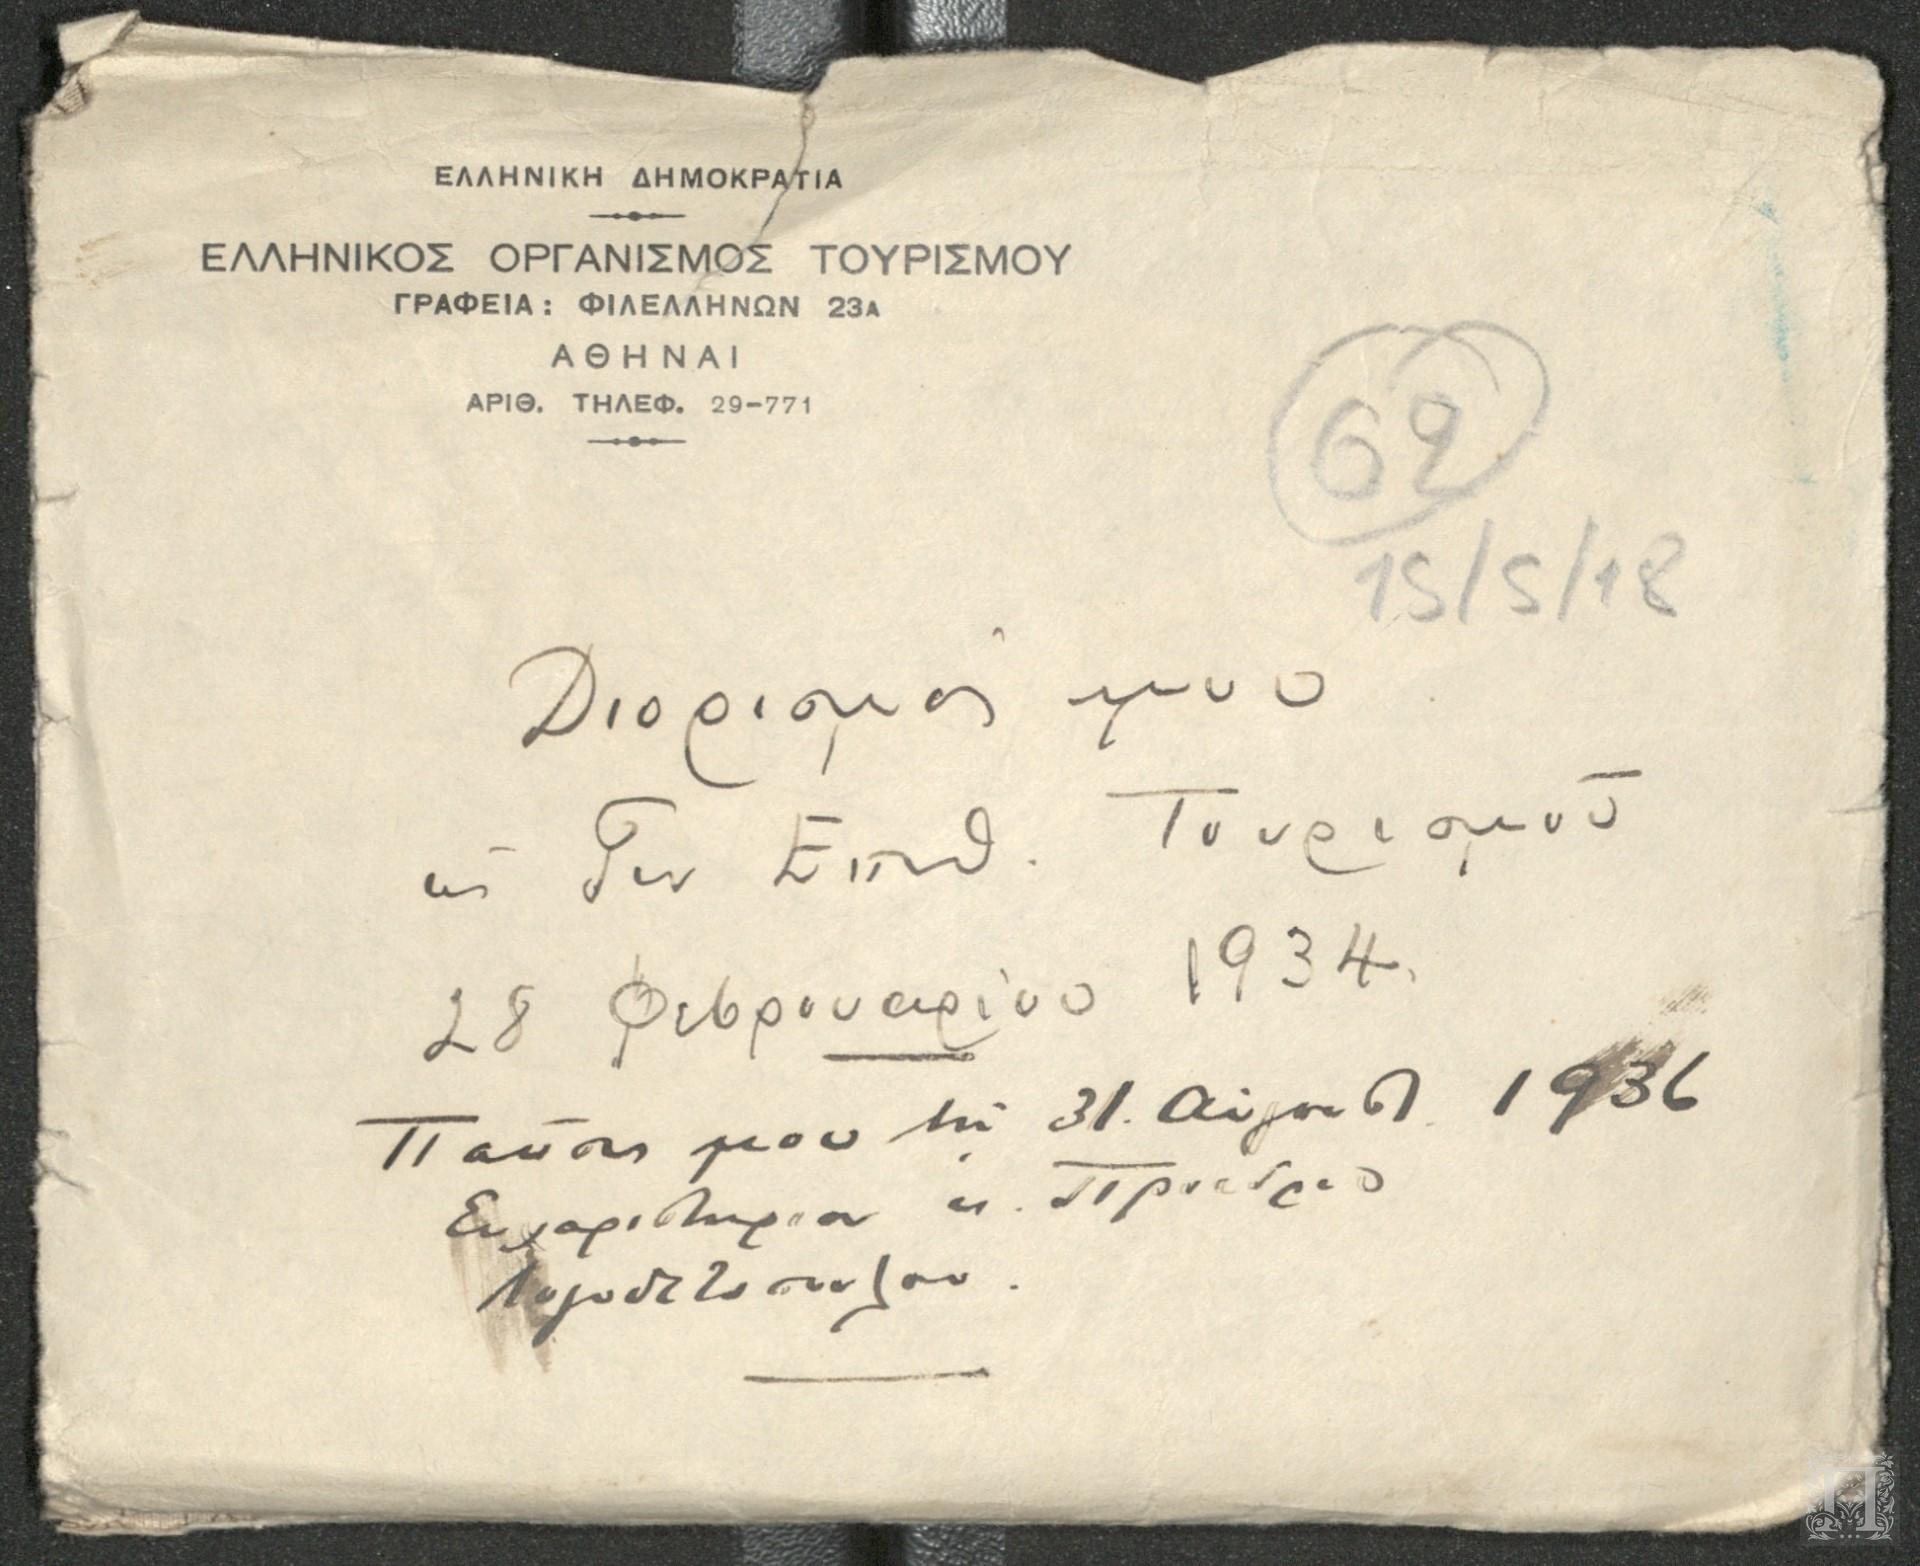 ΕΛΛΗΝΙΚΗ ΔΗΜΟΚΡΑΤΙΑ
ΕΛΛΗΝΙΚΟΣ ΟΡΓΑΝΙΣΜΟΣ ΤΟΥΡΙΣΜΟΥ
ΓΡΑΦΕΙΑ: ΦΙΛΕΛΛΗΝΩΝ 23Α
ΑΘΗΝΑΙ
ΑΡΙΘ. ΤΗΛΕΦ. 29-771
62
15/5/18
Διορισμός μου
ως Γεν Επιθ. Τουρισμού
28 Φεβρουαρίου 1934.
Παύσις μου τη 31. Αύγουστ. 1936
Ευχαριστήριον κ. Προέδρου
Λογοθετοπούλου.